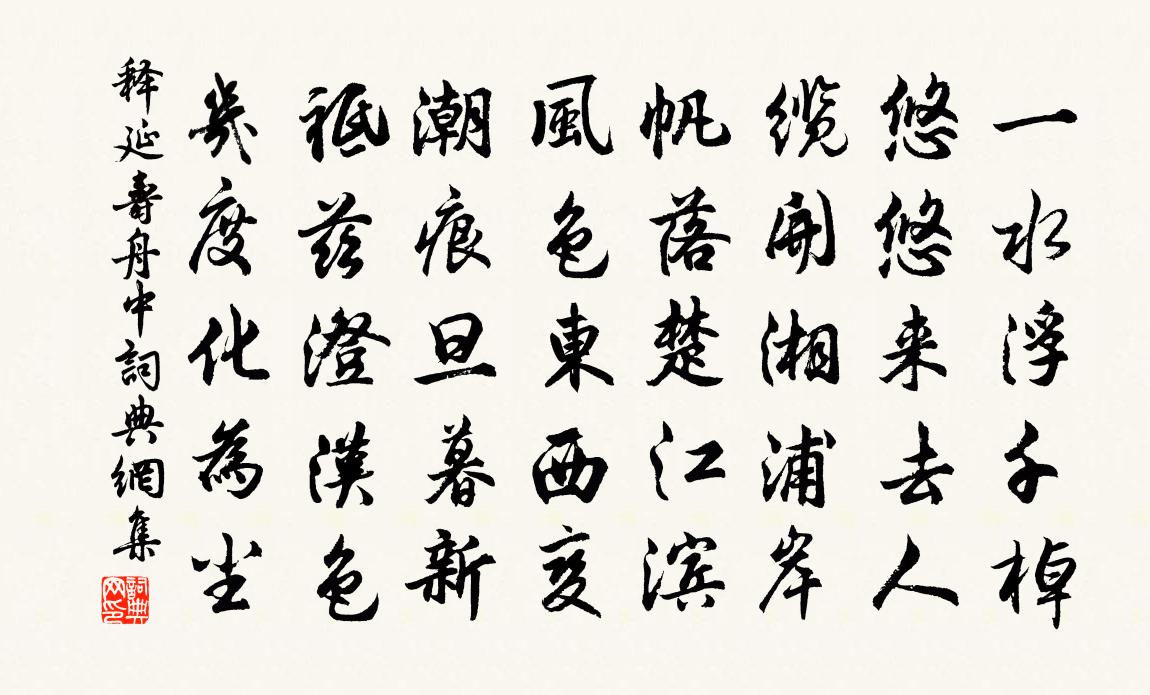 一水浮千棹
悠悠来去人
缆開湘浦岸
帆落楚江滨
風色東西变
潮痕旦暮新
祗兹澄漢色
幾度化為尘
释延壽舟中詞典網集
詞典网印